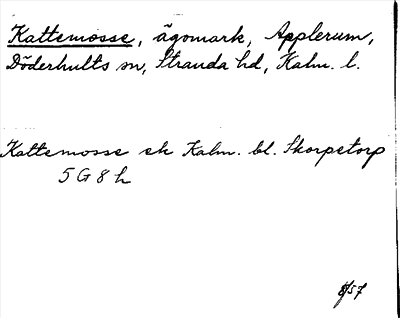 Kattemosse, ägomark, Applerum,
Döderhults sn, Stranda hd, Kalm. l.
Kattemosse ek Kalm. bl. Skorpetorp
5 G 8 h
8/57